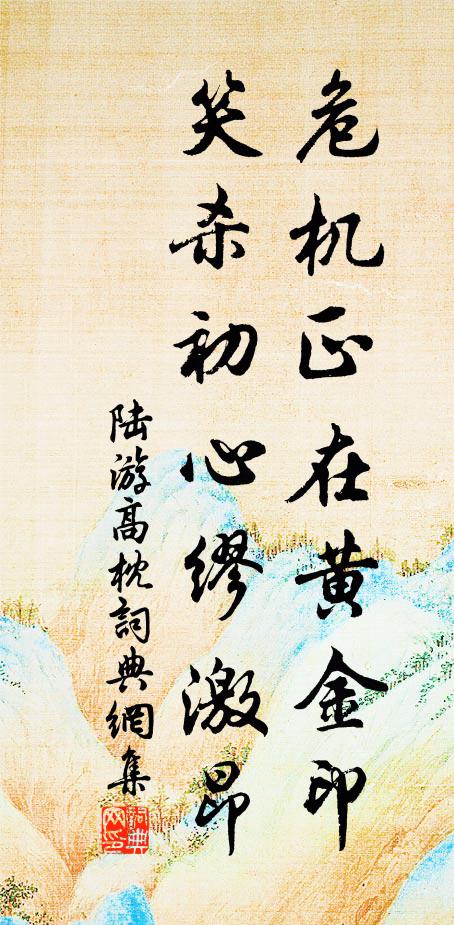 危机正在黄金印
笑杀初心缪激昂
陆游高枕詞典網集
詞典網印